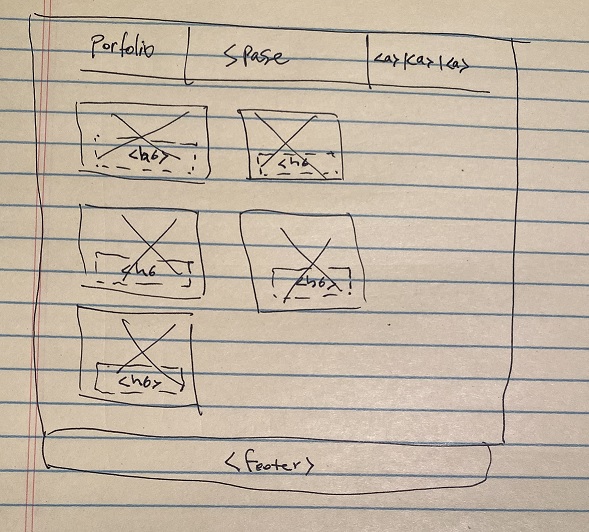 Porfolio spase <a>|<a>|<a>
<h6> <h6
<h6 <h6>
<h6>
<footer>